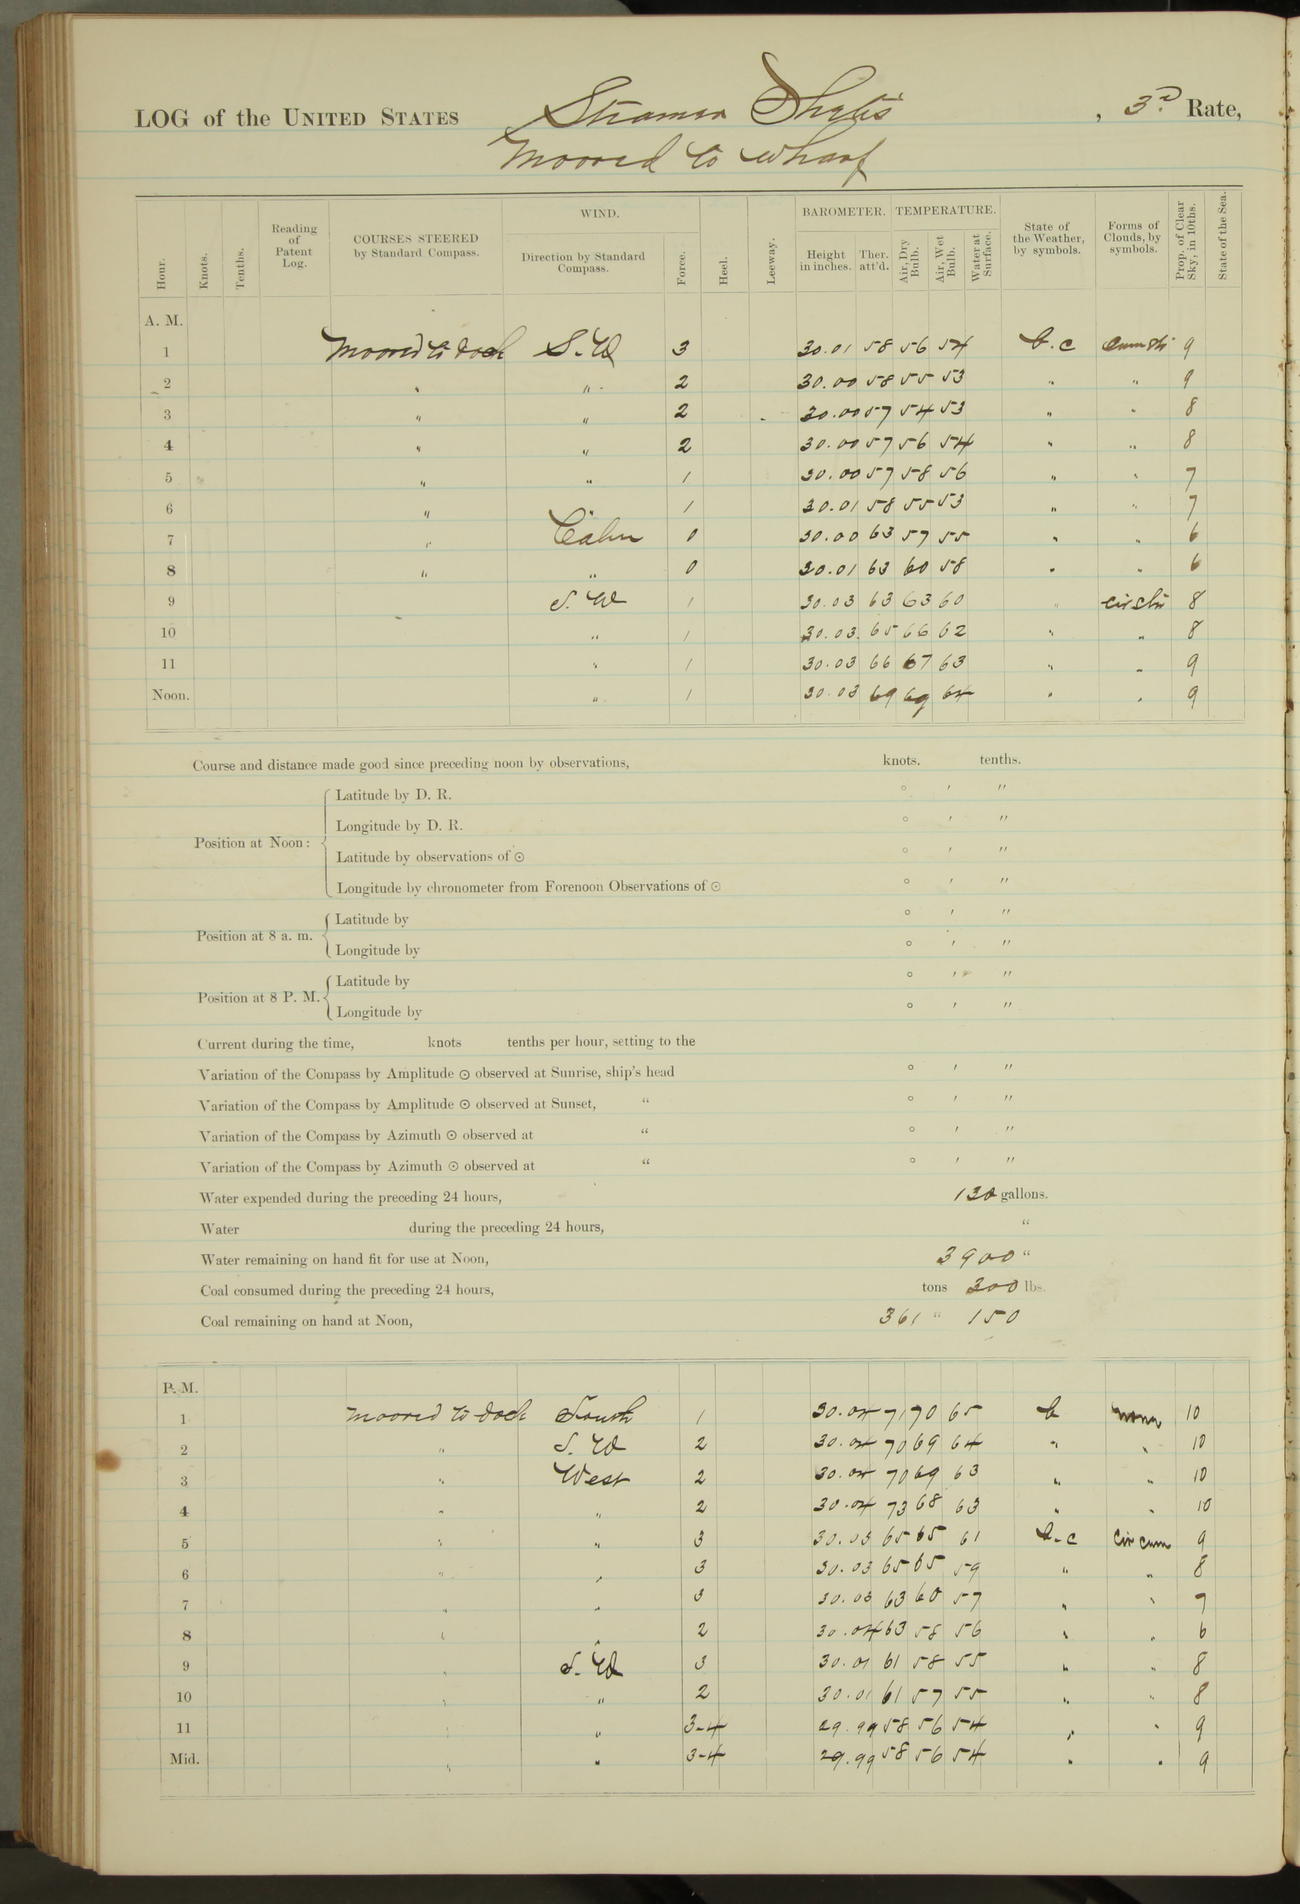 LOG of the UNITED STATES Steamer Thetis, 3rd Rate,
Moored to Wharf
Hour. Knots. Tenths. Reading of Patent Log. COURSES STEERED by Standard Compass. WIND. Direction by Standard Compass. Force. Heel. Leeway. BAROMETER. Height in inches. Ther. att'd. TEMPERATURE. Air, Dry Bulb. Air, Wet Bulb. Water at Surface. State of the Weather, by symbols. Forms of Clouds, by symbols. Prop. of Clear Sky, in 10ths. State of the Sea.
A. M.
1 Moored to dock S. W 3 30.01 58 56 54 b.c Cum Str 9
2 " " 2 30.00 58 55 53 " " 9
3 " " 2 30.00 57 54 53 " " 8
4 " " 2 30.00 57 56 54 " " 8
5 " " 1 30.00 57 58 56 " " 7
6 " " 1 30.01 58 55 53 " " 7
7 " Calm 0 30.00 63 57 55 " " 6
8 " " 0 30.01 63 60 58 " " 6
9 S. W 1 30.03 63 63 60 " cir str 8
10 " 1 30.03 65 66 62 " " 8
11 " 1 30.03 66 67 63 " " 9
Noon. " 1 30.03 69 69 64 " " 9
Course and distance made good since preceding noon by observations, knots. tenths.
Position at Noon: Latitude by D. R. ° ′ ″
Longitude by D. R. ° ′ ″
Latitude by observations of ⊙ ° ′ ″
Longitude by chronometer from Forenoon Observations of ⊙ ° ′ ″
Position at 8 a. m. Latitude by ° ′ ″
Longitude by ° ′ ″
Position at 8 P. M. Latitude by ° ′ ″
Longitude by ° ′ ″
Current during the time, knots tenths per hour, setting to the
Variation of the Compass by Amplitude ⊙ observed at Sunrise, ship's head ° ′ ″
Variation of the Compass by Amplitude ⊙ observed at Sunset, " ° ′ ″
Variation of the Compass by Azimuth ⊙ observed at " ° ′ ″
Variation of the Compass by Azimuth ⊙ observed at " ° ′ ″
Water expended during the preceding 24 hours, 130 gallons.
Water during the preceding 24 hours, "
Water remaining on hand fit for use at Noon, 3900 "
Coal consumed during the preceding 24 hours, tons 300 lbs.
Coal remaining on hand at Noon, 361 " 150
P. M.
1 Moored to dock South 1 30.04 71 70 65 b none 10
2 " S. W 2 30.04 70 69 64 " " 10
3 " West 2 30.04 70 69 63 " " 10
4 " " 2 30.04 73 68 63 " " 10
5 " " 3 30.03 65 65 61 b.c Cir cum 9
6 " " 3 30.03 65 65 59 " " 8
7 " " 3 30.03 63 60 57 " " 7
8 " " 2 30.04 63 58 56 " " 6
9 " S. W 3 30.01 61 58 55 " " 8
10 " " 2 30.01 61 57 55 " " 8
11 " " 3-4 29.99 58 56 54 " " 9
Mid. " " 3-4 29.99 58 56 54 " " 9